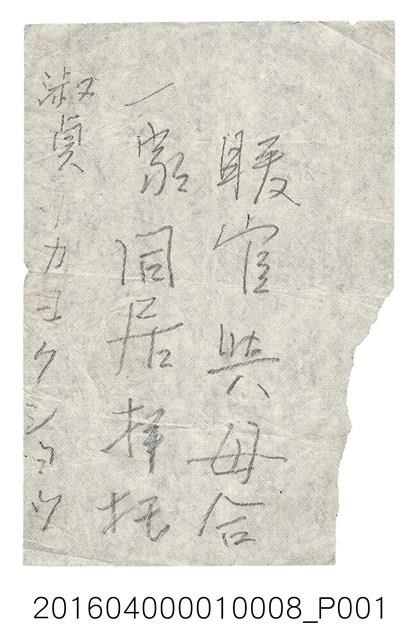 暖官與母合
一家同居择托
淑貞 リカヨクショウ
201604000010008_P001